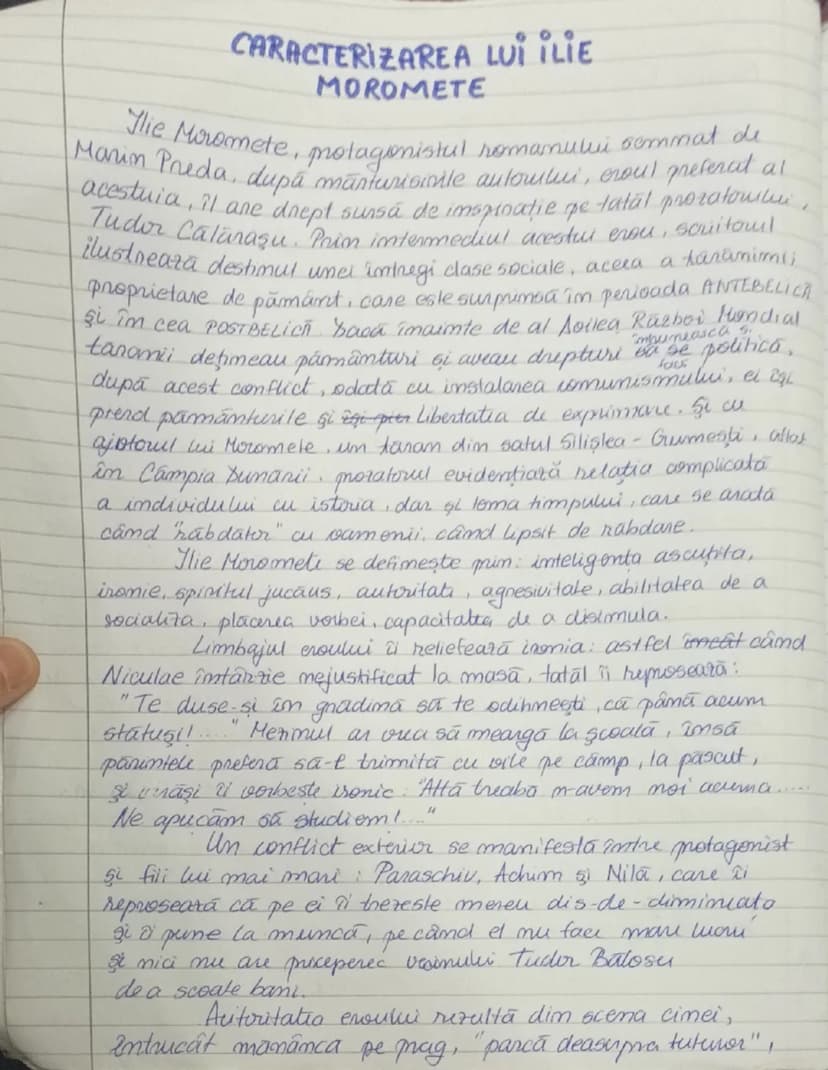 CARACTERIZAREA LUI ILIE
MOROMETE
Ilie Moromete, protagonistul romanului semnat de
Marin Preda, după mărturisirile autorului, eroul preferat al
acestuia, îl are drept sursă de inspirație pe tatăl prozatorului,
Tudor Călărașu. Prin intermediul acestui erou, scriitorul
ilustrează destinul unei întregi clase sociale, aceea a țărănimii
proprietare de pământ, care este surprinsă în perioada ANTEBELICĂ
și în cea POSTBELICĂ. Dacă înainte de al Doilea Război Mondial
țaranii dețineau pământuri și aveau drepturi să se politică,
împunească și
facă
după acest conflict, odată cu instalarea comunismului, ei își
pierd pământurile și libertatea de exprimare. Și cu
ajutorul lui Moromete, un țăran din satul Siliștea - Gumești, aflat
în Câmpia Dunării, prozatorul evidențiază relația complicată
a individului cu istoria, dar și tema timpului, care se arată
când "răbdător" cu oamenii, când lipsit de răbdare.
Ilie Moromete se definește prin: inteligența ascuțită,
ironie, spiritul jucăuș, autoritate, agresivitate, abilitatea de a
socializa, plăcerea vorbei, capacitatea de a disimula.
Limbajul eroului îi reliefează ironia: astfel încât când
Niculae întârzie nejustificat la masă, tatăl îi reproșează:
"Te duse-și în grădină să te odihnești, că până acum
stătuși!...." Mezinul ar vrea să meargă la școală, însă
părintele preferă să-l trimită cu oile pe câmp, la păscut,
și iarăși îi vorbește ironic: "Altă treabă n-avem noi acuma.....
Ne apucăm să studiem!...."
Un conflict exterior se manifestă între protagonist
și fiii lui mai mari: Paraschiv, Achim și Nilă, care îi
reproșează că pe ei îi trezește mereu dis-de-dimineață
și îi pune la muncă, pe când el nu face mare lucru
și nici nu are priceperea vecinului Tudor Bălosu
de a scoate bani.
Autoritatea eroului rezultă din scena cinei,
întrucât mănâncă pe prag, "parcă deasupra tuturor",